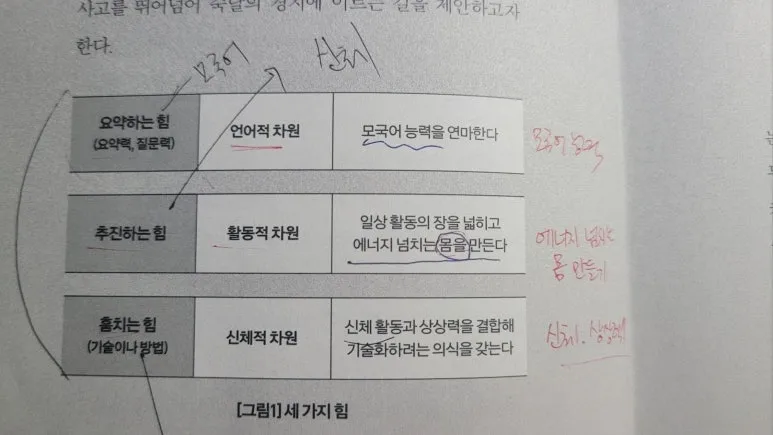 사고를 뛰어넘어 숙달의 경지에 이르는 길을 제안하고자
한다.
모국어
신체
요약하는 힘
(요약력, 질문력)
언어적 차원
모국어 능력을 연마한다
모국어 능력
추진하는 힘
활동적 차원
일상 활동의 장을 넓히고
에너지 넘치는 몸을 만든다
에너지 넘치는
몸 만들기
훔치는 힘
(기술이나 방법)
신체적 차원
신체 활동과 상상력을 결합해
기술화하려는 의식을 갖는다
신체, 상상력
[그림1] 세 가지 힘